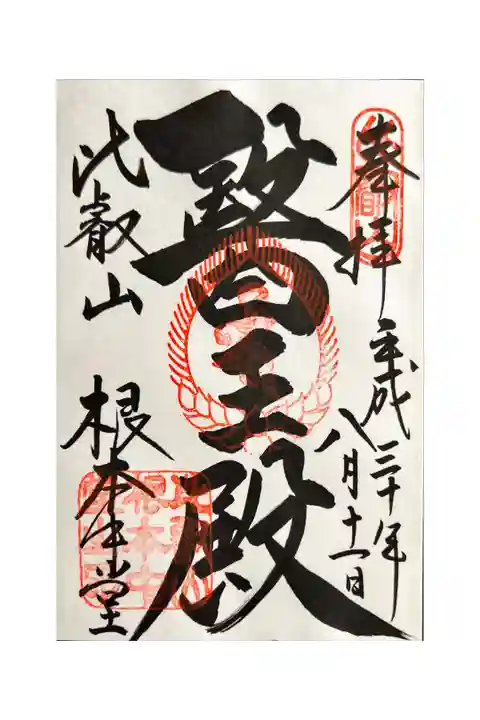 奉拝
平成三十年
八月十一日
醫王殿
比叡山
根本中堂